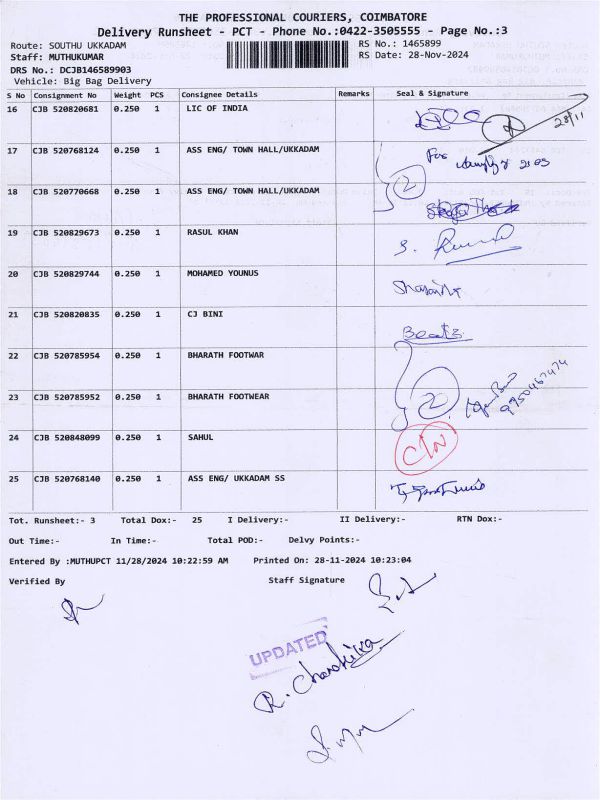 THE PROFESSIONAL COURIERS, COIMBATORE
Delivery Runsheet - PCT - Phone No.:0422-3505555 - Page No.:3
Route: SOUTHU UKKADAM RS No.: 1465899
Staff: MUTHUKUMAR RS Date: 28-Nov-2024
DRS No.: DCJB146589903
Vehicle: Big Bag Delivery
S No Consignment No Weight PCS Consignee Details Remarks Seal & Signature
16 CJB 520820681 0.250 1 LIC OF INDIA
28/11
17 CJB 520768124 0.250 1 ASS ENG/ TOWN HALL/UKKADAM For
2
18 CJB 520770668 0.250 1 ASS ENG/ TOWN HALL/UKKADAM
19 CJB 520829673 0.250 1 RASUL KHAN
20 CJB 520829744 0.250 1 MOHAMED YOUNUS
21 CJB 520820835 0.250 1 CJ BINI
22 CJB 520785954 0.250 1 BHARATH FOOTWAR
2
23 CJB 520785952 0.250 1 BHARATH FOOTWEAR
24 CJB 520848099 0.250 1 SAHUL
25 CJB 520768140 0.250 1 ASS ENG/ UKKADAM SS
Tot. Runsheet:- 3 Total Dox:- 25 I Delivery:- II Delivery:- RTN Dox:-
Out Time:- In Time:- Total POD:- Delvy Points:-
Entered By :MUTHUPCT 11/28/2024 10:22:59 AM Printed On: 28-11-2024 10:23:04
Verified By Staff Signature
UPDATED